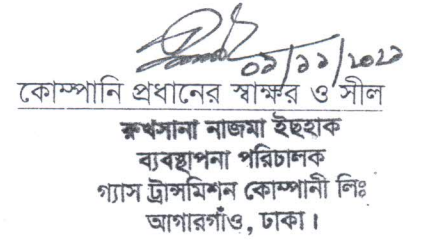 ০৯/১১/২০২৩
কোম্পানি প্রধানের স্বাক্ষর ও সীল
রুখসানা নাজমা ইছহাক
ব্যবস্থাপনা পরিচালক
গ্যাস ট্রান্সমিশন কোম্পানী লিঃ
আগারগাঁও, ঢাকা।